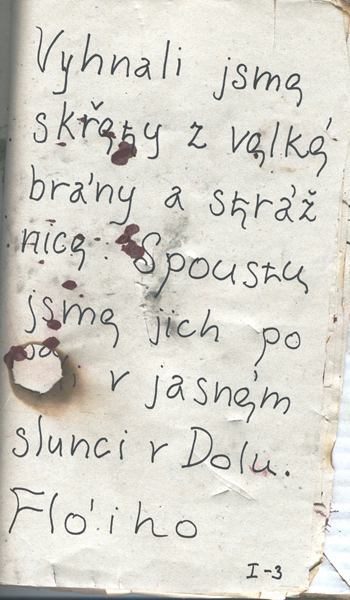 Vyhnali jsme
skřety z velké
brány a stráž
nice. Spoustu
jsme jich po
v jasném
slunci v Dolu.
Flói ho
I-3